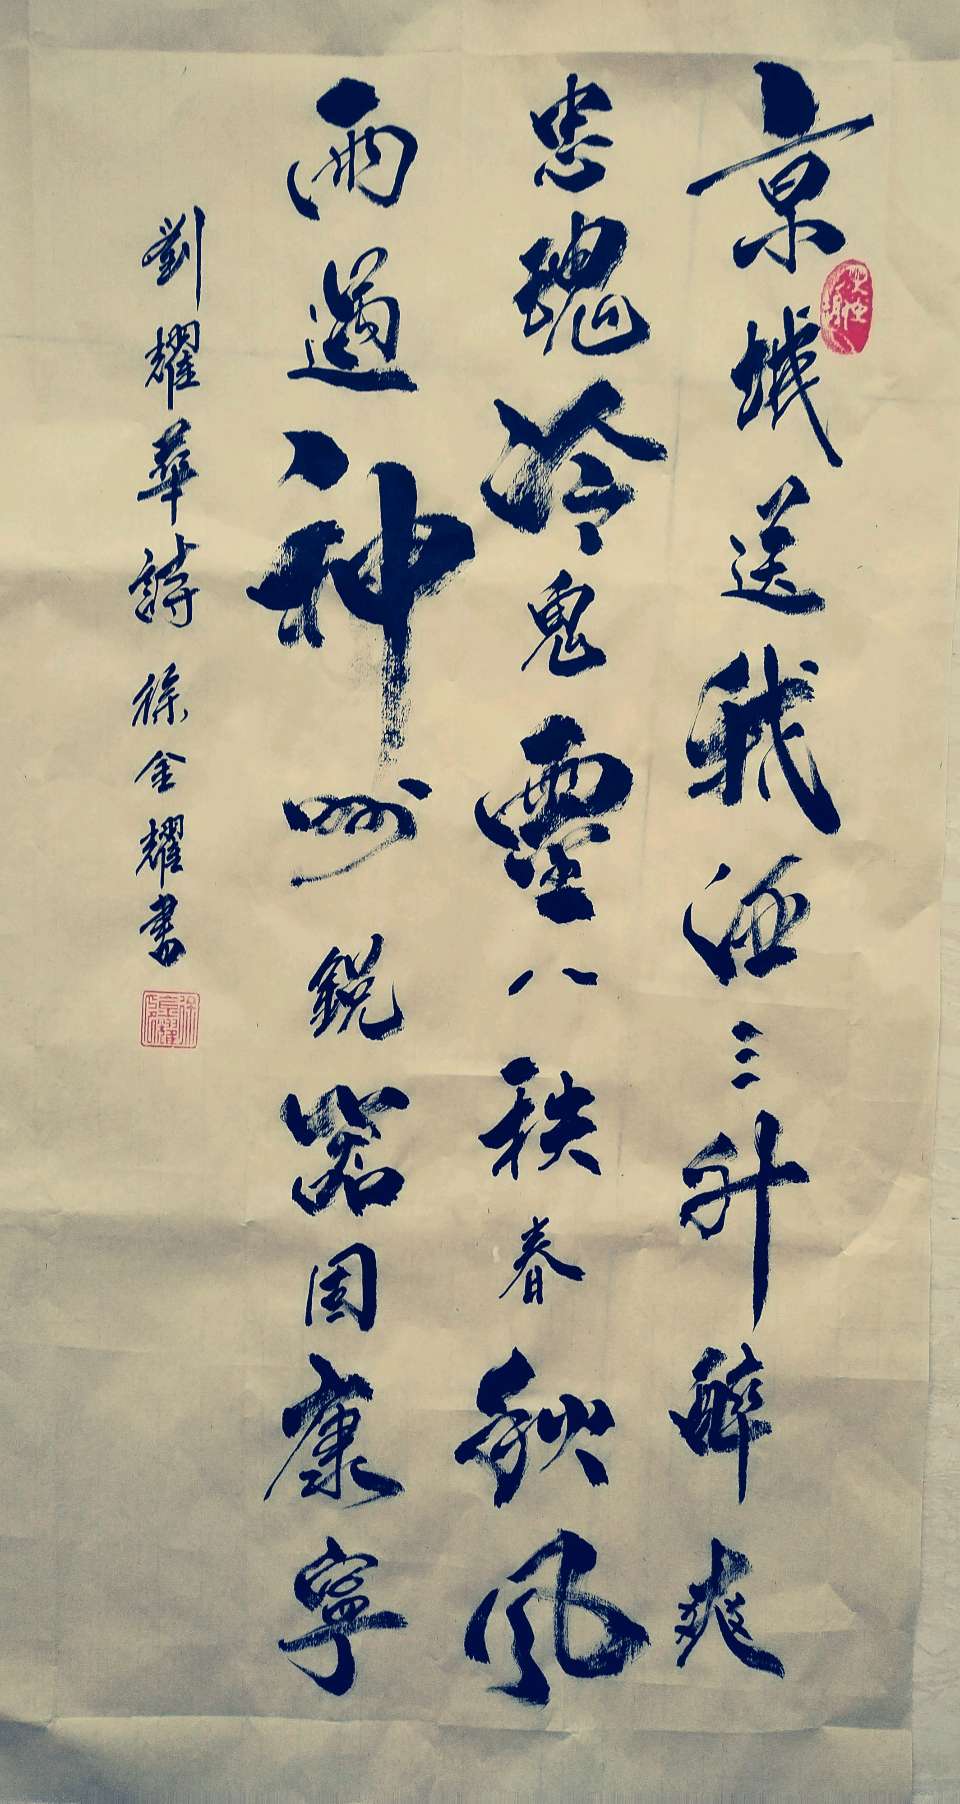 京城送我酒三升醉爽
忠魂冷鬼靈八秩春秋風
雨過神州銳器固康寧
劉耀華詩徐金耀書